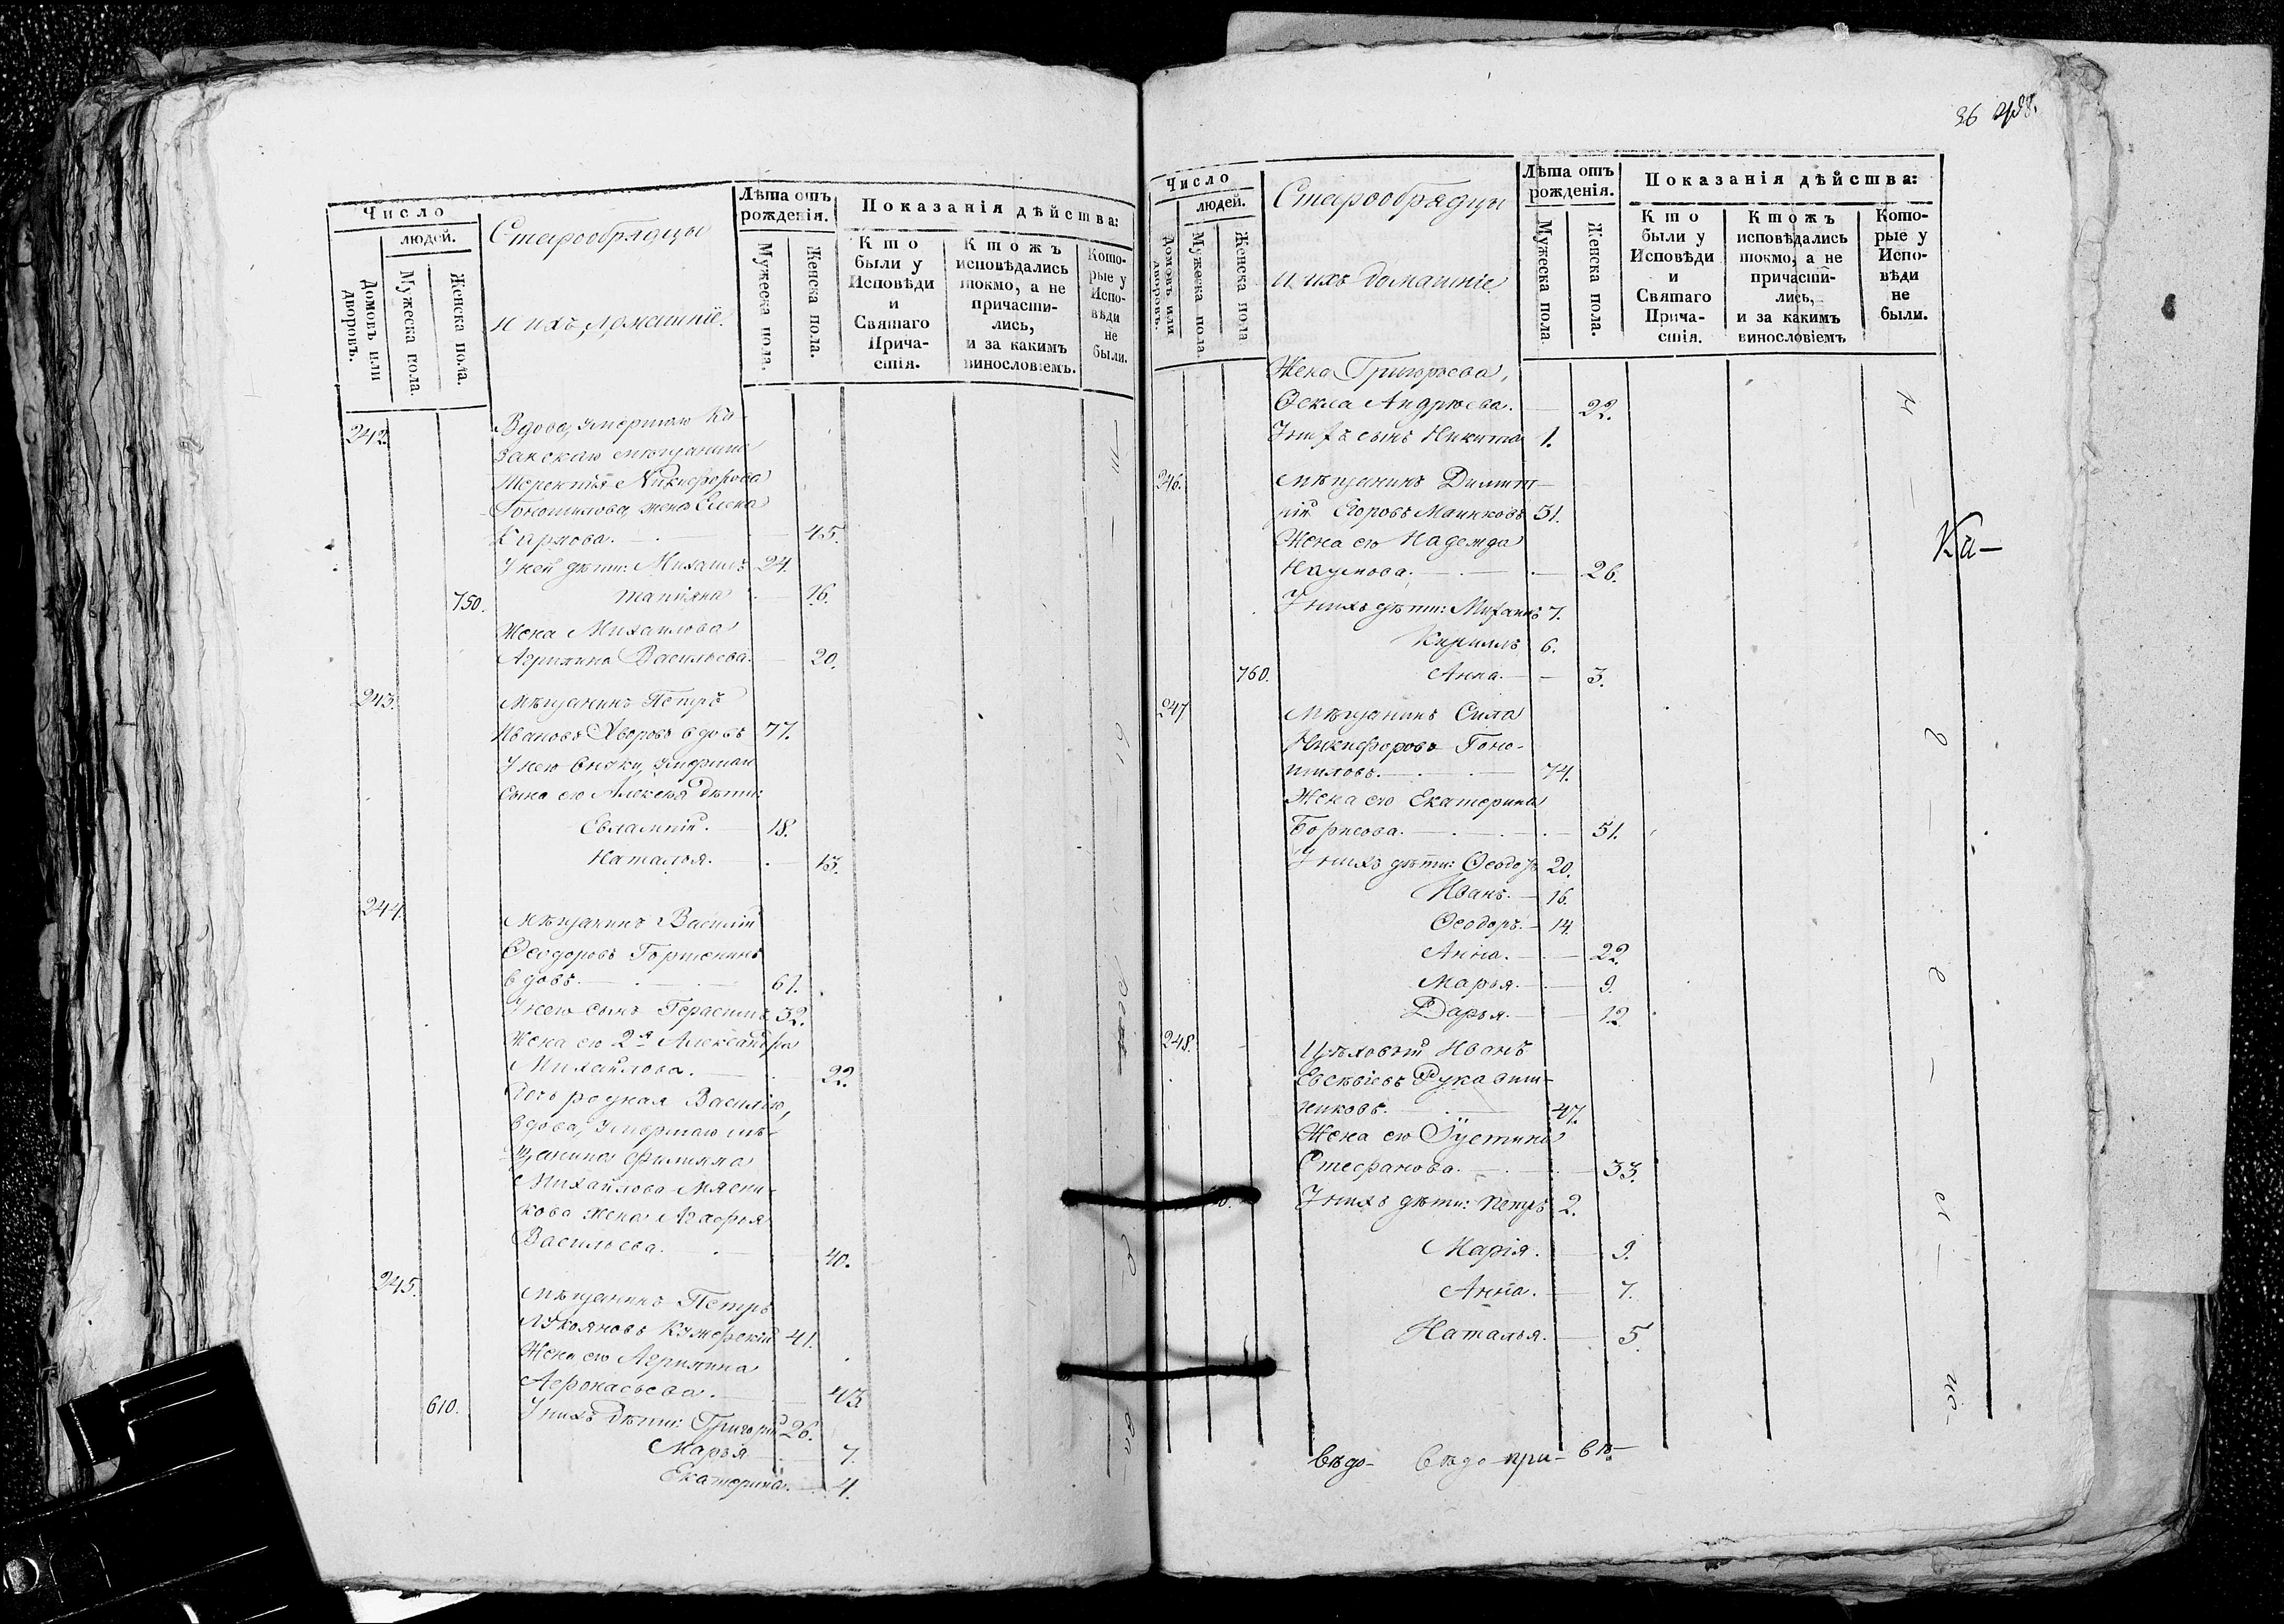 36
Число
людей.
Домовъ или дворовъ.
Мужеска пола
Женска пола.
Старообрядцы
и ихъ домашніе.
Лѣта отъ рожденія.
Мужеска пола.
Женска пола.
Показанія дѣйства:
Кто были у Исповѣди и Святаго Причастія.
Ктожъ исповѣдались токмо, а не причастились, и за какимъ винословіемъ.
Которые у Исповѣди не были.
242. Вдова, умершаго Ка-
занскаго мѣщанина
Терентія Никифорова
Гоношилова, жена Елена
Карпова. 45.
У ней дѣти: Михаилъ 24.
750. Татіяна 16.
Жена Михаилова
Агрипина Васильева. 20.
243. Мѣщанинъ Петръ
Ивановъ вдовъ 77.
У него внуки, умершаго
сына его Алексѣя дѣти:
Евлампій. 18.
Наталья. 13.
244. Мѣщанинъ Василій
Ѳеодоровъ Горшенинъ
вдовъ. 61.
У него сынъ Герасимъ 32.
Жена его 2я Александра
Михайлова. 22.
родная Василію,
вдова, умершаго мѣ-
щанина Филиппа
Михайлова Мясни-
кова жена Агафья
Васильева. 40.
245. Мѣщанинъ Петръ
Лукояновъ 41.
Жена его Агрипина
Афонасьева. 43.
610. У нихъ дѣти: Григорій 26.
Марья 7.
Екатерина. 4.
Число
людей.
Домовъ или дворовъ.
Мужеска пола
Женска пола
Старообрядцы
и ихъ домашніе.
Лѣта отъ рожденія.
Мужеска пола
Женска пола.
Показанія дѣйства:
Кто были у Исповѣди и Святаго Причастія.
Ктожъ исповѣдались токмо, а не причастились, и за какимъ винословіемъ
Которые у Исповѣди не были.
Жена Григорьева,
Ѳекла Андреева. 22.
У нихъ сынъ Никита 1.
246. Мѣщанинъ Димит-
рій Егоровъ 31.
Жена его Надежда
Наумова. 26.
У нихъ дѣти: Михаилъ 7.
Кириллъ 6.
760. Анна. 3.
247 Мѣщанинъ Сила
Никифоровъ Гоно-
шиловъ. 74.
Жена его Екатерина
Борисова. 51.
У нихъ дѣти: Ѳеодоръ 20.
Иванъ. 16.
Ѳеодоръ. 14.
Анна. 22.
Марья. 9.
Дарья. 12
248. Цѣховый Иванъ
Евсѣевъ Рукавиш-
никовъ. 47.
Жена его Іустина
Стефанова. 33.
У нихъ дѣти: Петръ 2.
Марія. 9.
Анна. 7.
Наталья. 5.
Ка-
вѣдо- вѣдо при- вѣ-